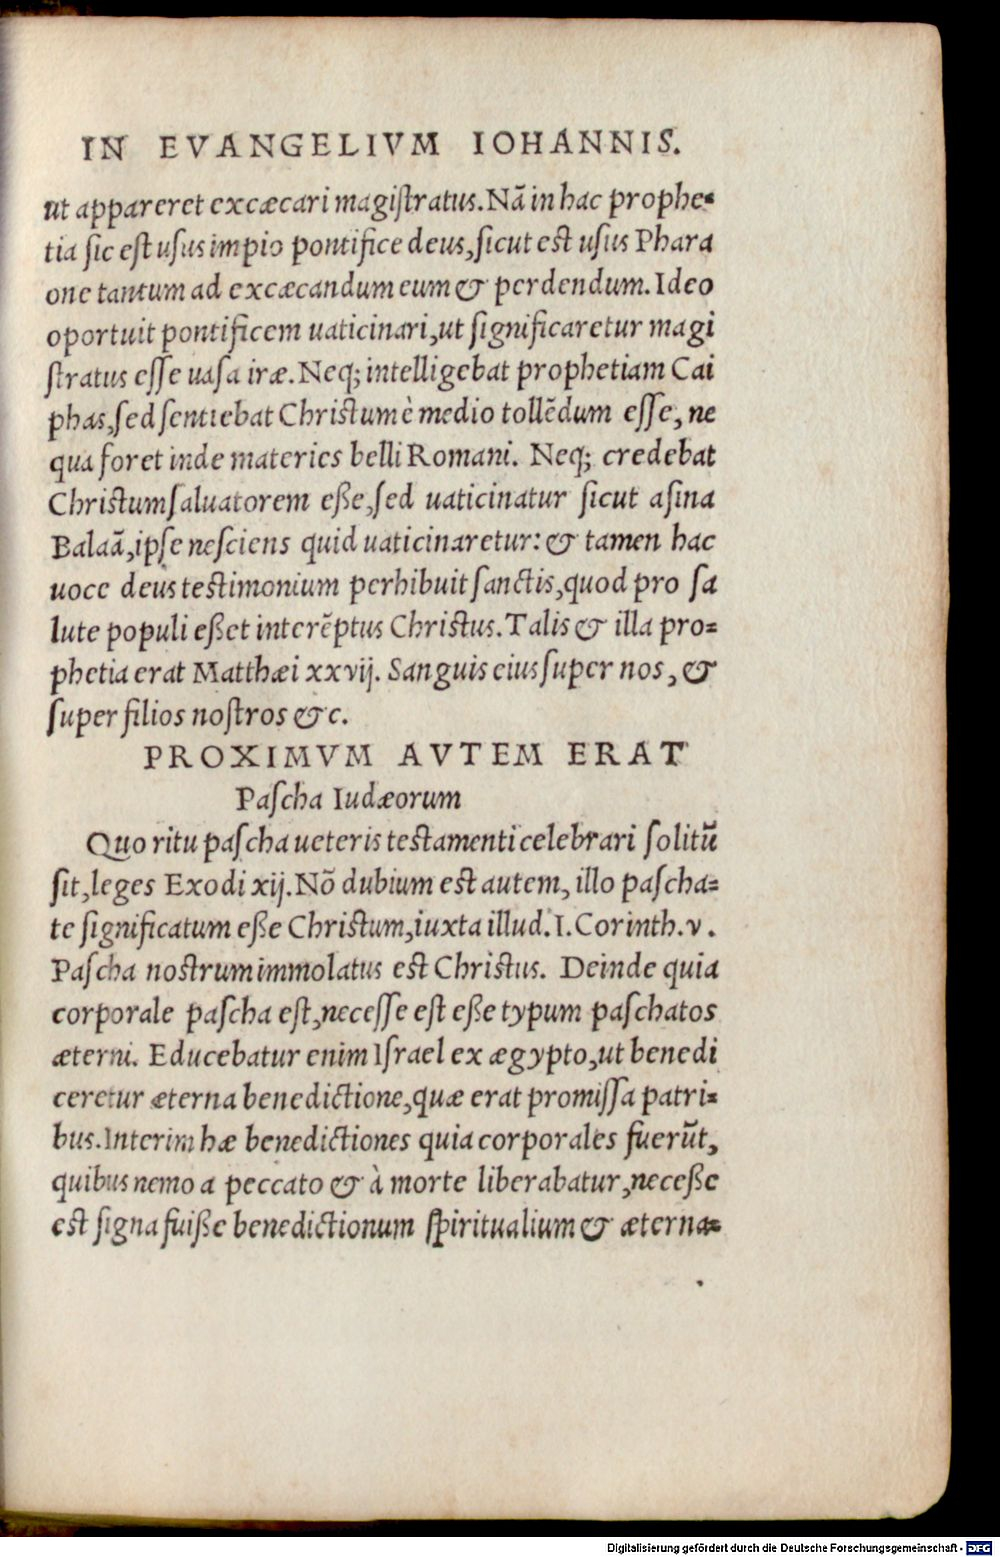 IN EVANGELIVM IOHANNIS.
ut appareret excæcari magiſtratus. Nã in hac prophe=
tia ſic eſt uſus impio pontifice deus, ſicut est uſus Phara
one tantum ad excæcandum eum & perdendum. Ideo
oportuit pontificem uaticinari, ut ſignificaretur magi
ſtratus eſſe uaſa iræ. Neq; intelligebat prophetiam Cai
phas, ſed ſentiebat Christum è medio tollẽdum eſſe, ne
qua foret inde materies belli Romani. Neq; credebat
Christum ſaluatorem eße, ſed uaticinatur ſicut aſina
Balaã, ipſe neſciens quid uaticinaretur: & tamen hac
uoce deus testimonium perhibuit ſanctis, quod pro ſa
lute populi eßet interẽptus Christus. Talis & illa pro=
phetia erat Matthæi xxvij. Sanguis eius ſuper nos, &
ſuper filios noſtros &c.
PROXIMVM AVTEM ERAT
Paſcha Iudæorum
Quo ritu paſcha ueteris testamenti celebrari ſolitũ
ſit, leges Exodi xij. Nõ dubium est autem, illo paſcha=
te ſignificatum eße Christum, iuxta illud. I. Corinth. v.
Paſcha nostrum immolatus est Christus. Deinde quia
corporale paſcha eſt, neceſſe est eße typum paſchatos
æterni. Educebatur enim Iſrael ex ægypto, ut benedi
ceretur æterna benedictione, quæ erat promiſſa patri=
bus. Interim hæ benedictiones quia corporales fuerũt,
quibus nemo a peccato & à morte liberabatur, neceße
est ſigna fuiße benedictionum ſpiritualium & æterna=
Digitalisierung gefördert durch die Deutsche Forschungsgemeinschaft - DFG